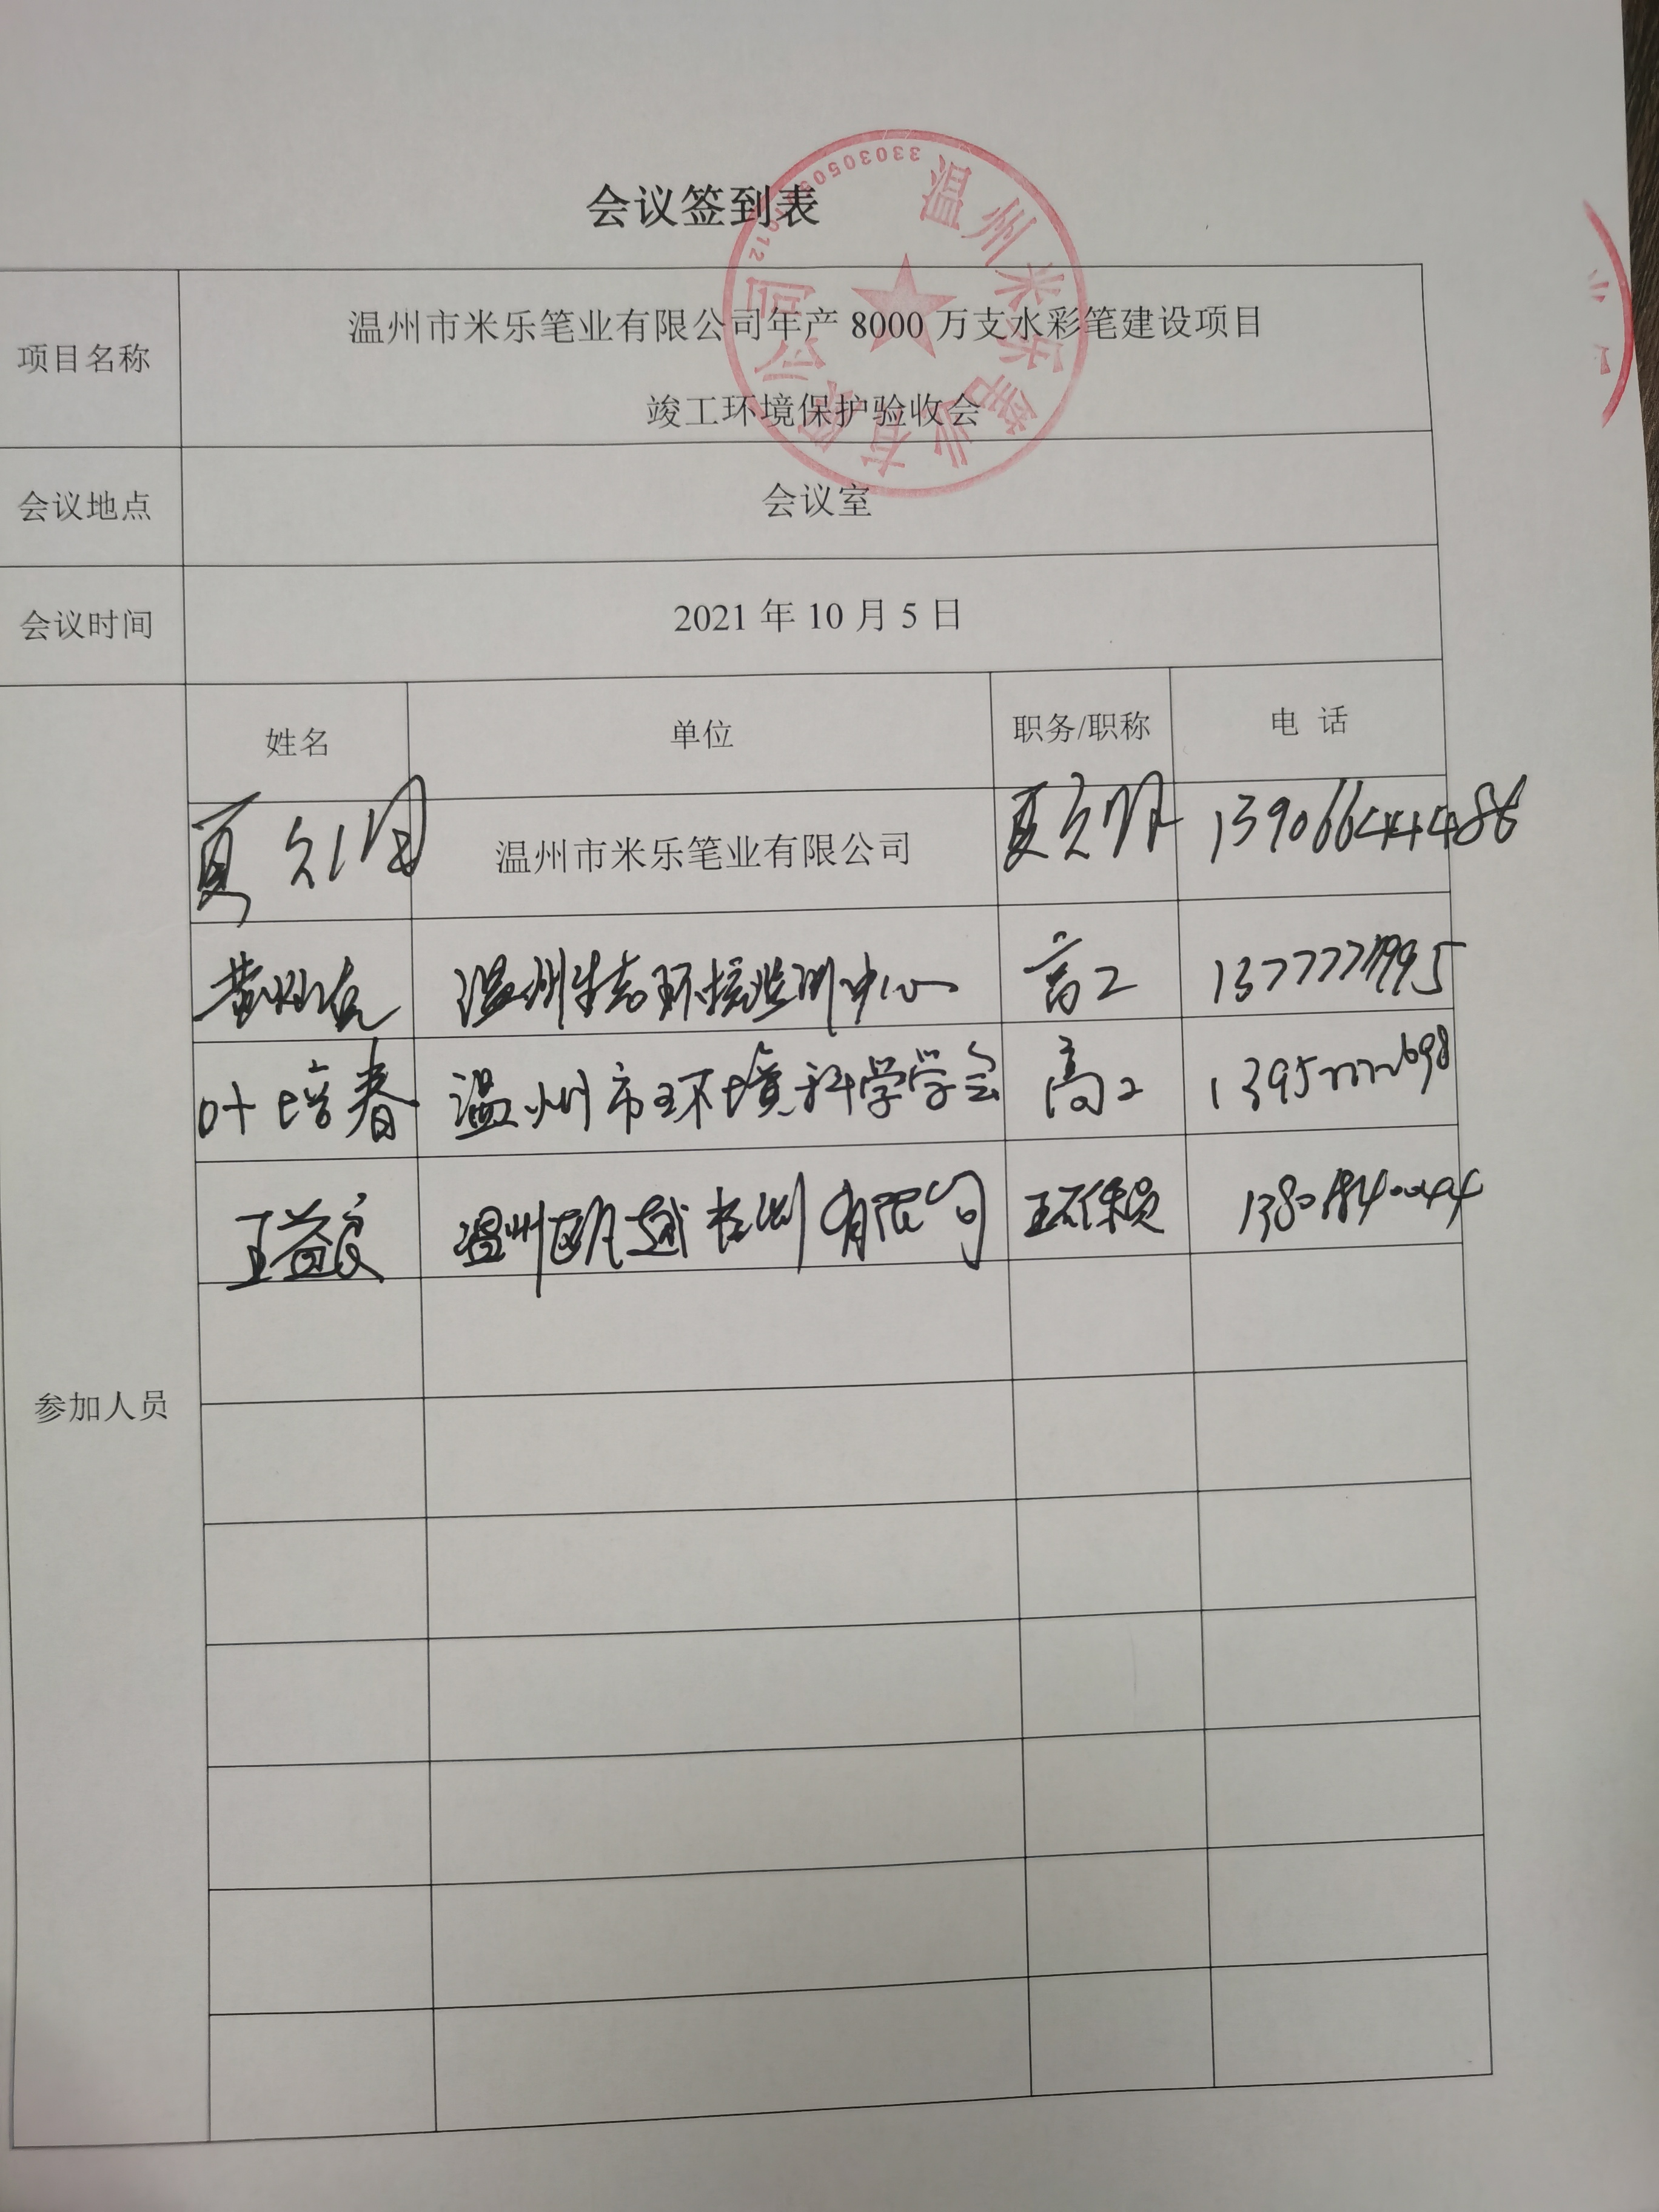 会议签到表
项目名称
温州市米乐笔业有限公司年产 8000 万支水彩笔建设项目
竣工环境保护验收会
会议地点
会议室
会议时间
2021 年 10 月 5 日
参加人员
姓名 单位 职务/职称 电 话
夏 温州市米乐笔业有限公司 夏 13906644486
黄 温州生态环境监测中心 高工
叶培春 温州市环境科学学会 高工
王益良 温州瓯越检测有限公司
温州米乐笔业有限公司